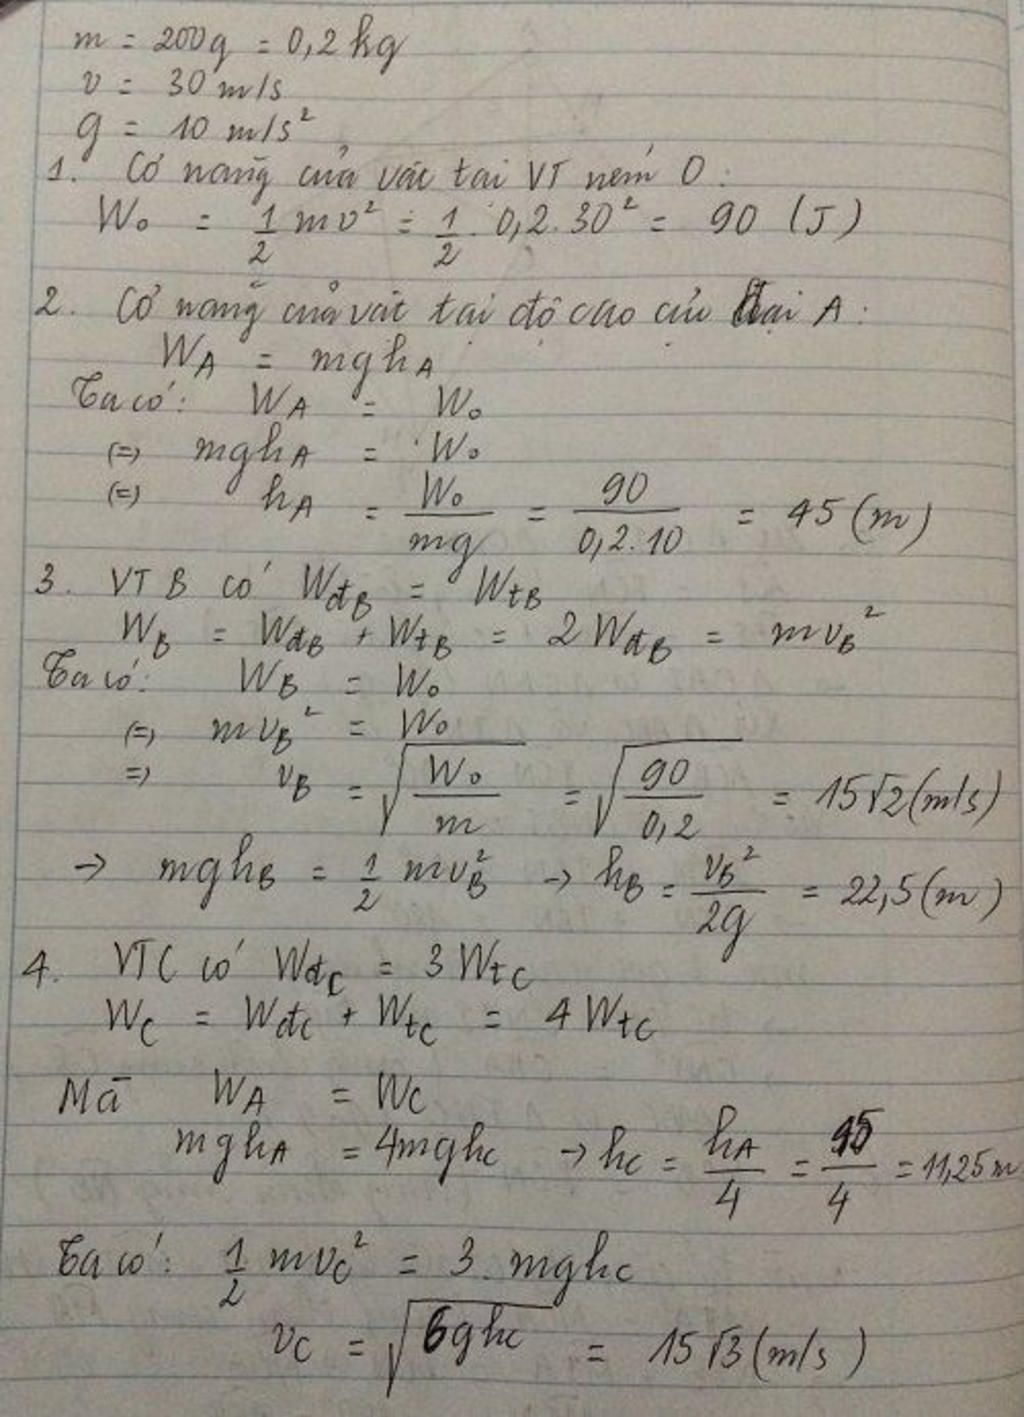 m = 200g = 0,2 kg
v = 30 m/s
g = 10 m/s²
1. Cơ năng của vật tại VT ném O:
W₀ = 1/2 mv² = 1/2 . 0,2 . 30² = 90 (J)
2. Cơ năng của vật tại độ cao cực đại A:
W_A = mgh_A
Ta có: W_A = W₀
(=) mgh_A = W₀
(=) h_A = W₀/mg = 90/0,2.10 = 45 (m)
3. VT B có W_đB = W_tB
W_B = W_đB + W_tB = 2W_đB = mv_B²
Ta có: W_B = W₀
(=) mv_B² = W₀
=) v_B = √(W₀/m) = √(90/0,2) = 15√2 (m/s)
→ mgh_B = 1/2 mv_B² → h_B = v_B²/2g = 22,5 (m)
4. VTC có W_đC = 3W_tC
W_C = W_đC + W_tC = 4W_tC
Mà W_A = W_C
mgh_A = 4mgh_C → h_C = h_A/4 = 45/4 = 11,25m
Ta có: 1/2 mv_C² = 3.mgh_C
v_C = √(6gh_C) = 15√3 (m/s)